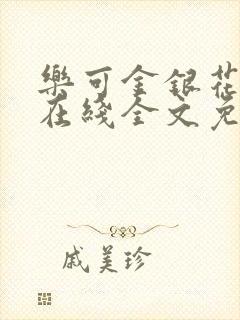 樂可金銀花
在綫全文免
戚美珍